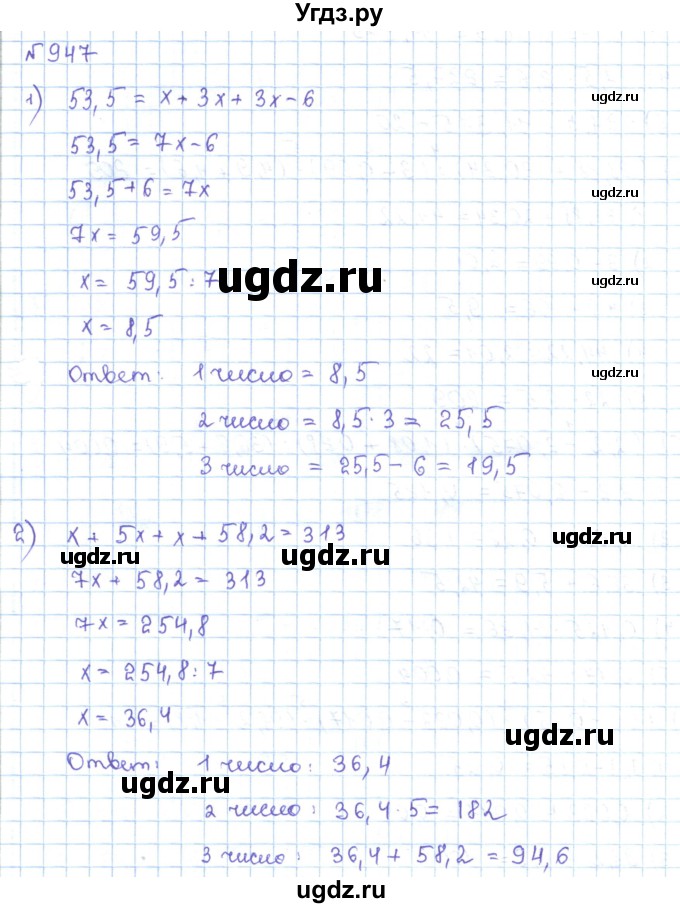 Угдз.ру
№947
1) 53,5 = x + 3x + 3x - 6
ugdz.ru
53,5 = 7x - 6
53,5 + 6 = 7x
ugdz.ru
7x = 59,5
x = 59,5 : 7
ugdz.ru
ugdz.ru
x = 8,5
Ответ: 1 число = 8,5
ugdz.ru
2 число = 8,5 · 3 = 25,5
3 число = 25,5 - 6 = 19,5
2) x + 5x + x + 58,2 = 313
ugdz.ru
ugdz.ru
ugdz.ru
7x + 58,2 = 313
7x = 254,8
x = 254,8 : 7
x = 36,4
ugdz.ru
Ответ: 1 число: 36,4
ugdz.ru
2 число: 36,4 · 5 = 182
3 число: 36,4 + 58,2 = 94,6
ugdz.ru